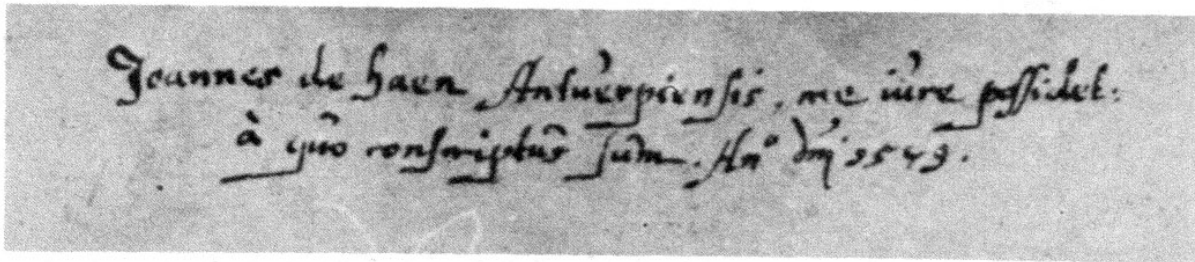 Joannes de haen Antuerpiensis, me iure possidet:
à quo conscriptus sum. Anº dnj 1543.